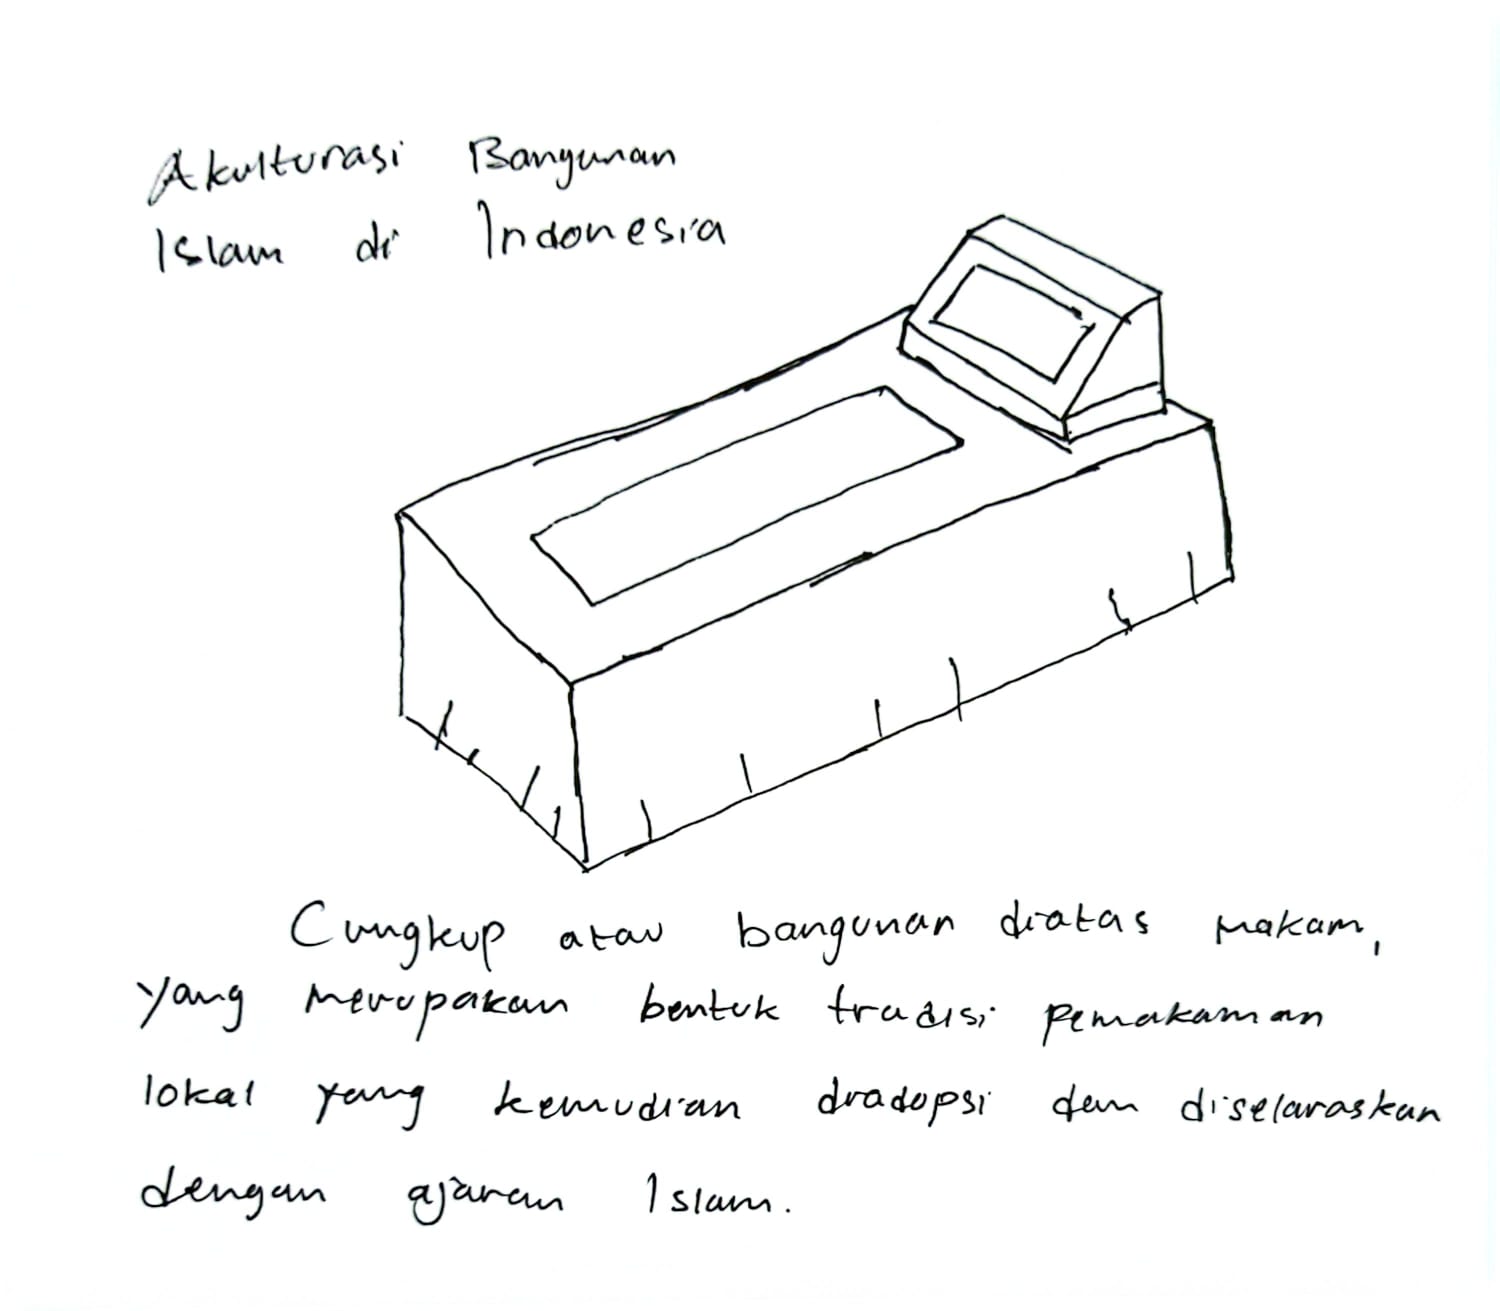 Akulturasi Bangunan
Islam di Indonesia
Cungkup atau bangunan diatas makam,
yang merupakan bentuk tradisi pemakaman
lokal yang kemudian diadopsi dan diselaraskan
dengan ajaran Islam.